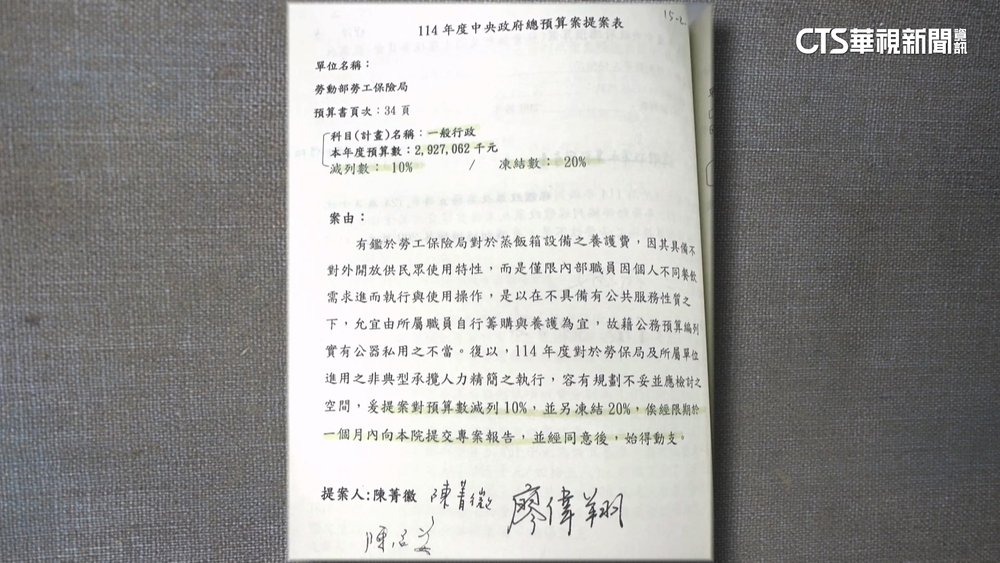 15-2
CTS華視新聞資訊
114 年度中央政府總預算案提案表
單位名稱：
勞動部勞工保險局
預算書頁次：34 頁
科目(計畫)名稱：一般行政
本年度預算數：2,927,062 千元
減列數： 10% / 凍結數： 20%
案由：
有鑑於勞工保險局對於蒸飯箱設備之養護費，因其具備不
對外開放供民眾使用特性，而是僅限內部職員因個人不同餐飲
需求進而執行與使用操作，是以在不具備有公共服務性質之
下，允宜由所屬職員自行籌購與養護為宜，故藉公務預算編列
實有公器私用之不當。復以，114 年度對於勞保局及所屬單位
進用之非典型承攬人力精簡之執行，容有規劃不妥並應檢討之
空間，爰提案對預算數減列 10%，並另凍結 20%，俟經限期於
一個月內向本院提交專案報告，並經同意後，始得動支。
提案人:陳菁徽 陳菁徽 廖偉翔